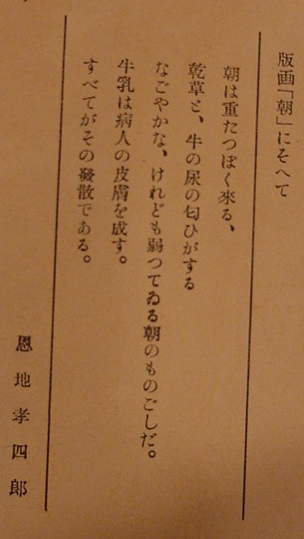 版画「朝」にそへて
朝は重たつぽく來る、
乾草と、牛の尿の匂ひがする
なごやかな、けれども弱つてゐる朝のものごしだ。
牛乳は病人の皮膚を成す。
すべてがその發散である。
恩地孝四郎